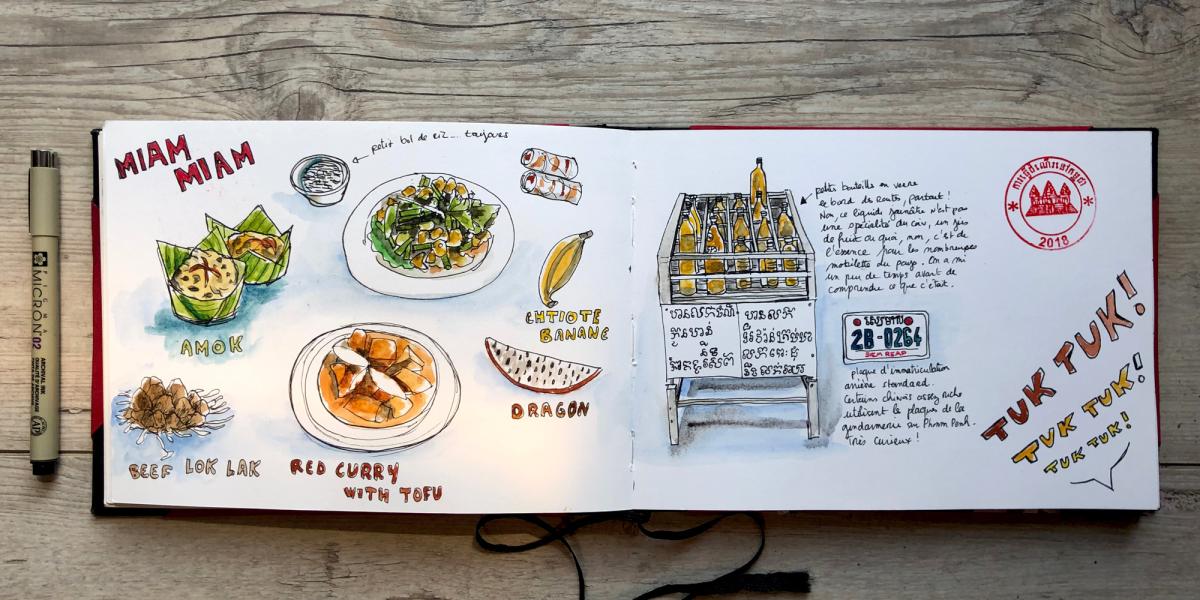 MIAM
MIAM
petit bol de riz... toujours
AMOK
CHTIOTE
BANANE
DRAGON
BEEF LOK LAK
RED CURRY
WITH TOFU
SAKURA
PIGMA
MICRON 02
ARCHIVAL INK
AP
petites bouteilles en verre
le bord des routes, partout!
Non, ce liquide jaunâtre n'est pas
une spécialité du coin, un jus
de fruit ou quoi, non, c'est de
l'essence pour les nombreuses
mobilettes du pays. On a mis
un peu de temps avant de
comprendre ce que c'était.
សៀមរាប
2B-0264
SIEM REAP
plaque d'immatriculation
arrière standard.
Certains chinois assez riches
utilisent la plaque de la
gendarmerie de Phnom Penh.
Très curieux!
2018
TUK TUK!
TUK TUK!
TUK TUK!